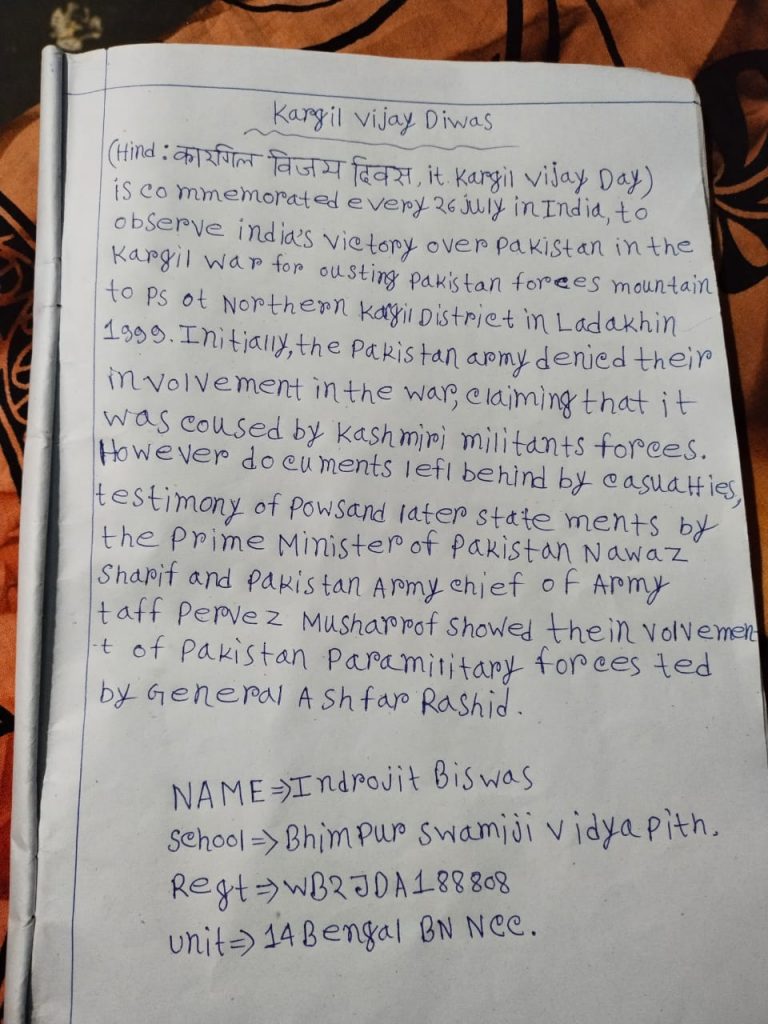 Kargil Vijay Diwas
(Hind: कारगिल विजय दिवस, it. Kargil Vijay Day)
is commemorated every 26 July in India, to
observe india's victory over Pakistan in the
Kargil war for ousting Pakistan forces mountain
to Ps ot Northern Kargil District in Ladakhin
1999. Initially, the Pakistan army denied their
involvement in the war, claiming that it
was coused by Kashmiri militants forces.
However documents lefl behind by casualties,
testimony of Powsand later state ments by
the Prime Minister of Pakistan Nawaz
Sharif and Pakistan Army chief of Army
taff Pervez Musharrof showed thein volvemen
-t of Pakistan Paramilitary forces ted
by General Ashfar Rashid.
NAME⇒Indrojit Biswas
School⇒Bhimpur Swamiji Vidyapith.
Regt⇒WB2JDA188808
unit⇒14 Bengal BN NCC.